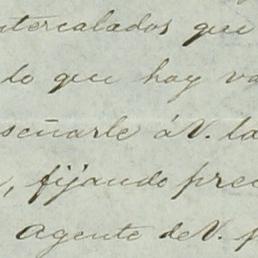 intercalados que
lo que hay va
señarle á V. la
, fijando prec
Agente de V. p